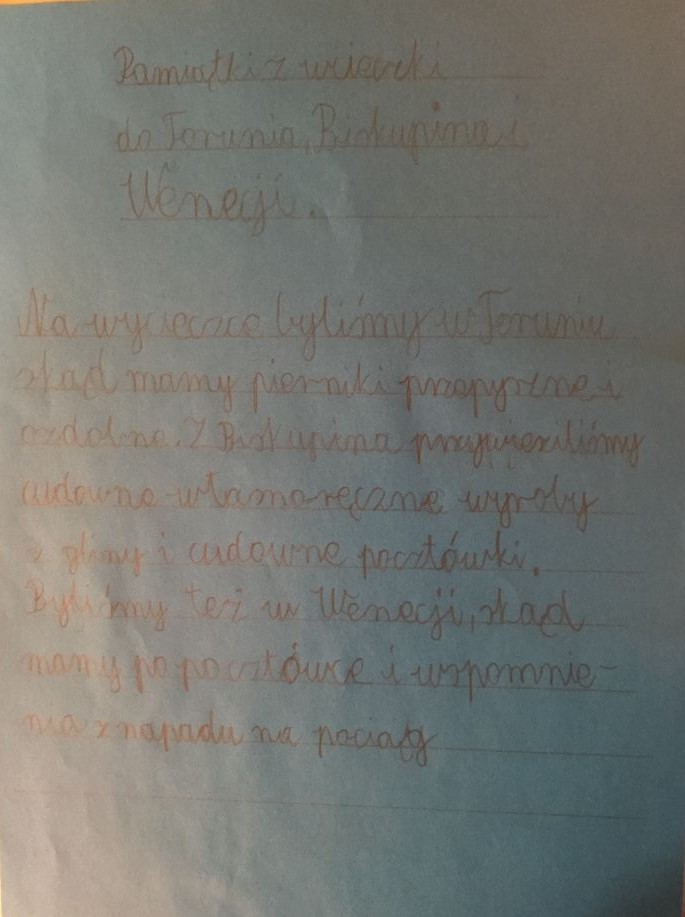 Pamiątki z wcieczki
do Torunia, Biskupina i
Wenecji.
Na wycieczce byliśmy w Toruniu
skąd mamy pierniki przepyszne i
ozdobne. Z Biskupina przywieźliśmy
cudowne własnoręczne wyroby
z gliny i cudowne pocztówki.
Byliśmy też w Wenecji, skąd
mamy po pocztówce i wspomnie-
nia z napadu na pociąg